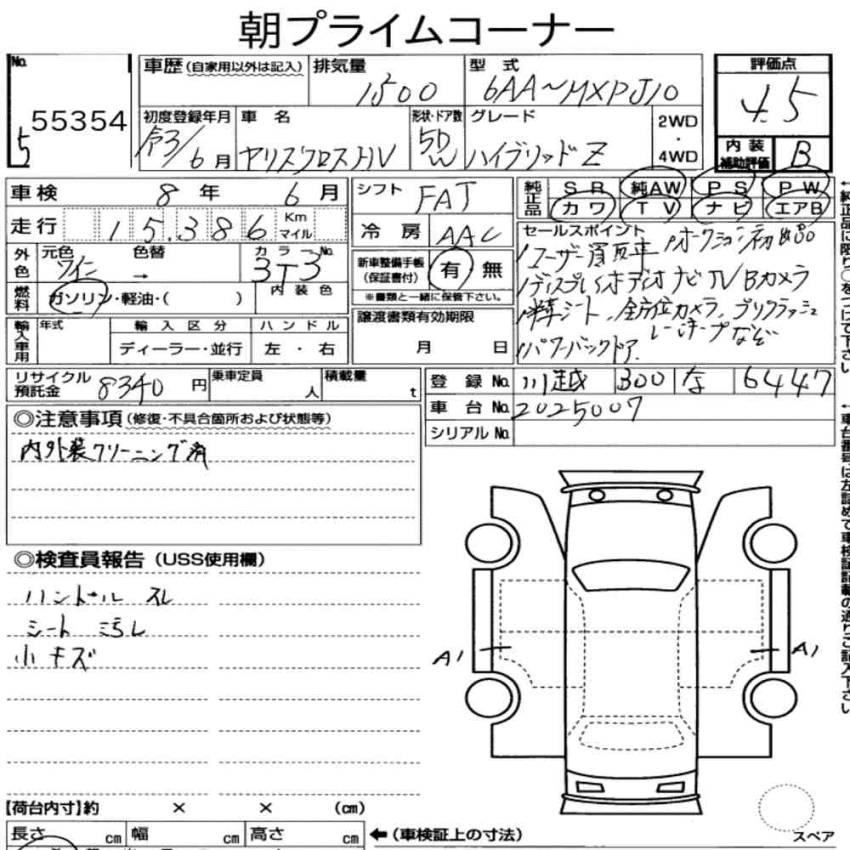 朝プライムコーナー
No. 55354
5
車歴 (自家用以外は記入)
排気量 1500
型式 6AA~MXPJ10
評価点 4.5
初度登録年月 令3/6月
車名 ヤリスクロスHV
形状・ドア数 5D W
グレード ハイブリッドZ
2WD・4WD
内装補助評価 B
車検 8年 6月
シフト FAT
純正品 SR 純AW PS PW
カワ TV ナビ エアB
走行 15.386 Km マイル
冷房 AAC
セールスポイント
外色 元色 ワイン 色替 → カラーNo. 3T3
新車整備手帳(保証書付) 有・無
※書類と一緒に保管下さい。
1ユーザー買取車 1オークション初
1ディスプレSオーディオ ナビ TV Bカメラ
1半革シート、全方位カメラ、プリクラッシュ
レーンキープなど
1パワーバックドア
燃料 ガソリン・軽油・( )
内装色
輸入車用 年式 輸入区分 ハンドル
ディーラー・並行 左・右
譲渡書類有効期限
月 日
リサイクル預託金 8340円
乗車定員 人
積載量 t
登録No. 川越 300 な 6447
車台No. 2025007
シリアルNo.
◎注意事項 (修復・不具合箇所および状態等)
内外装クリーニング済
◎検査員報告 (USS使用欄)
ハンドル スレ
シート 汚れ
小キズ
A1
A1
【荷台内寸】約 × × (cm)
長さ cm 幅 cm 高さ cm
←(車検証上の寸法)
スペア
←純正品に限り○をつけて下さい
←車台番号は左詰めで車検証記載の通りご記入下さい